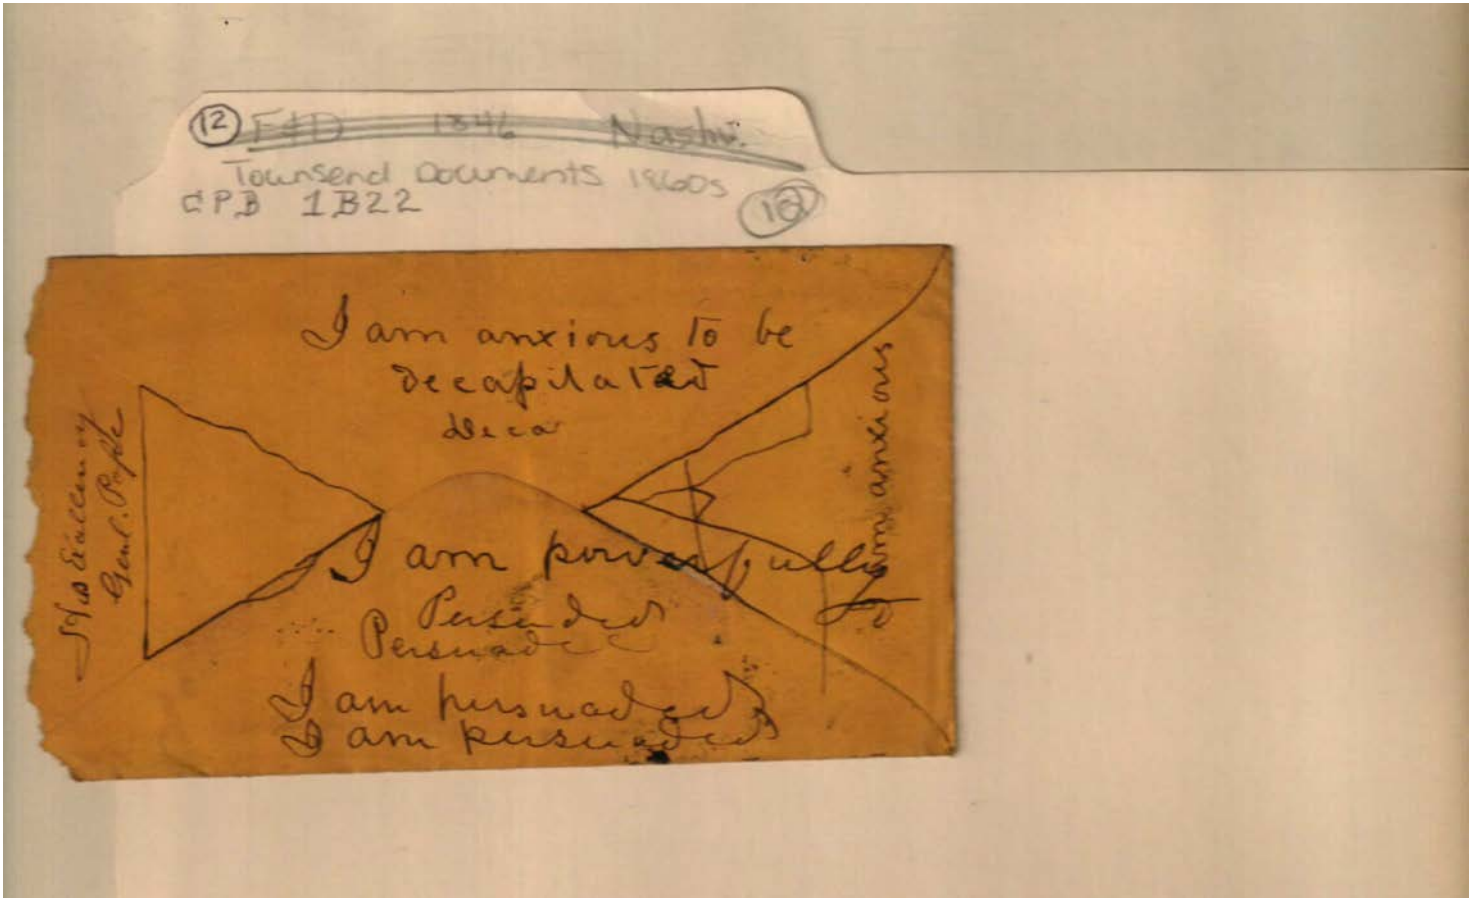 12 F&D 1846 Nashv.
Townsend Documents 1860s
CPB 1B22 12
I am anxious to be
decapilated
deca
His Excellency
Genl. Pope
I am anxious
I am powerfully
Persuded
Persuaded
I am persuaded
I am persuaded